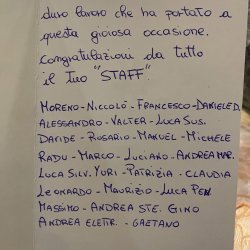 duro lavoro che ha portato a
questa gioiosa occasione.
Congratulazioni da tutto
il tuo "STAFF".
MORENO - NICCOLÒ - FRANCESCO - DANIELE D.
ALESSANDRO - VALTER - LUCA SUS.
DAVIDE - ROSARIO - MANUEL - MICHELE
RADU - MARCO - LUCIANO - ANDREA MAR.
LUCA SILV. YURI - PATRIZIA - CLAUDIA
LEONARDO - MAURIZIO - LUCA PEN.
MASSIMO - ANDREA STE. GINO
ANDREA ELETTR. - GAETANO